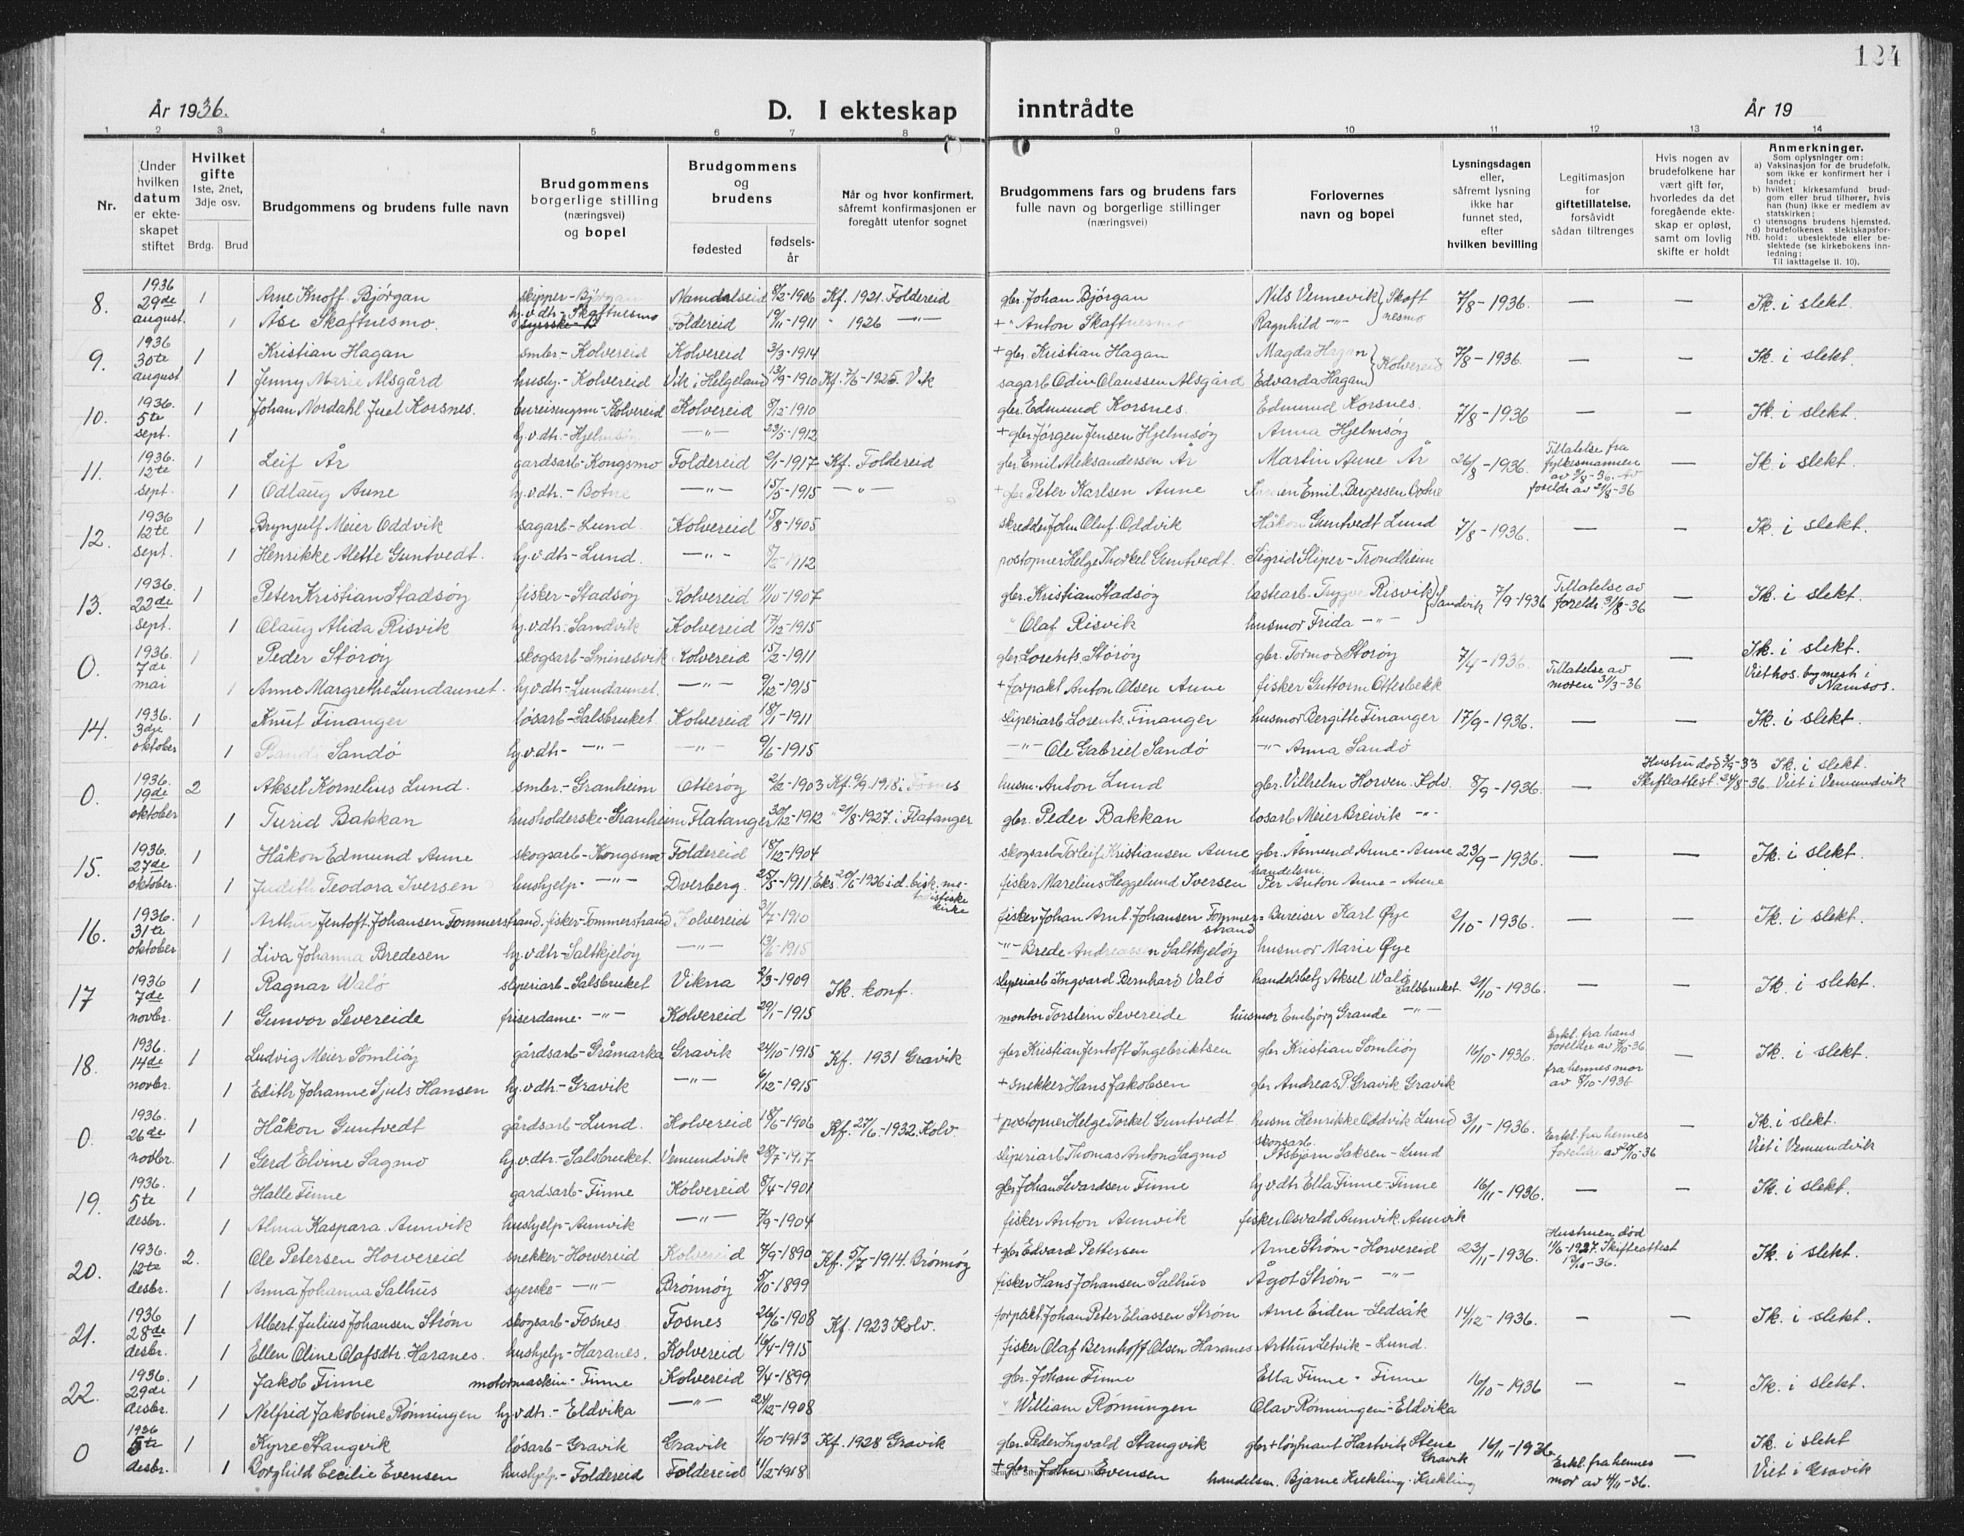 124
År 1936.
D. I ekteskap inntrådte
År 19
1 2 3 4 5 6 7 8 9 10 11 12 13 14
Nr.
Under hvilken datum er ekteskapet stiftet
Hvilket gifte
1ste, 2net, 3dje osv.
Brdg. Brud
Brudgommens og brudens fulle navn
Brudgommens borgerlige stilling (næringsvei) og bopel
Brudgommens og brudens
fødested
fødselsår
Når og hvor konfirmert, såfremt konfirmasjonen er foregått utenfor sognet
Brudgommens fars og brudens fars fulle navn og borgerlige stillinger (næringsvei)
Forlovernes navn og bopel
Lysningsdagen eller, såfremt lysning ikke har funnet sted, efter hvilken bevilling
Legitimasjon for giftetillatelse, forsåvidt sådan tiltrenges
Hvis nogen av brudefolkene har vært gift før, hvorledes da det foregående ekteskap er opløst, samt om lovlig skifte er holdt
Anmerkninger.
Som oplysninger om:
a) Vaksinasjon for de brudefolk, som ikke er konfirmert her i landet;
b) hvilket kirkesamfund brudgom eller brud tilhører, hvis han (hun) ikke er medlem av statskirken;
c) utensogns brudens hjemsted.
d) brudefolkenes slektskapsforhold: ubeslektede eller beslektede (se kirkebokens innledning:
NB. Til iakttagelse II. 10).
8. 1936 29de august 1 Arne Knoff Bjørgan skipper - Namdalseid 8/2-1906 Kf. 1921 Foldereid gbr. Johan Bjørgan Nils Vennevik Skaftnesmo 7/8-1936. — — Ik. i slekt
1 Åse Skaftnesmo. hj.v.dtr. - Skaftnesmo Foldereid 19/11-1911 " 1926 —"— + " Anton Skaftnesmo Ragnhild —"—
9. 1936 30te august 1 Kristian Hagan smbr - Kolvereid Kolvereid 3/3-1914 + gbr. Kristian Hagan Magda Hagan Kolvereid 7/8-1936. — — Ik. i slekt.
1 Jenny Marie Alsgård hushj. - Kolvereid Vik i Helgeland 13/9-1910 Kf. 7/6-1925. Vik sagarb Odin Claussen Alsgård Edvarda Hagan
10. 1936. 5te sept. 1 Johan Nordahl Juel Korsnes. bureisingsm - Kolvereid Kolvereid 8/12-1910 gbr. Edmund Korsnes. Edmund Korsnes. 7/8-1936 — — Ik. i slekt
1 hj.v.dtr. - Hjelmsøy —"— 23/5-1912 + gbr Jørgen Jensen Hjelmsøy Anna Hjelmsøy
11. 1936. 12te sept. 1 Leif År gardsarb - Kongsmo Foldereid 2/1-1917 Kf. Foldereid gbr. Emil Aleksandersen År Martin Aune År 26/8-1936. Tillatelse fra fylkesmannen — Ik. i slekt
1 Odlaug Aune hj.v.dtr. - Botne —"— 15/5-1915 —"— + gbr Peter Karlsen Aune Emil Bergersen
12. 1936 12te sept. 1 Brynjulf Meier Oddvik sagarb - Lund. Kolvereid 15/8-1905 skredder John Oluf Oddvik Håkon Guntvedt Lund 7/8-1936. — — Ik. i slekt.
1 Henrikke Alette Guntvedt. hj.v.dtr - Lund. —"— 1912 postopner Helge Thorkel Guntvedt. Sigrid Sliper - Trondheim
13. 1936 22de sept. 1 Peter Kristian Stadsøy fisker - Stadsøy Kolvereid 1/10-1907 gbr. Kristian Stadsøy lastearb - Trygve Risvik Sandvik 7/9-1936 Tillatelse av foreldr 31/8-36 — Ik. i slekt.
1 Olaug Alida Risvik hj.v.dtr. Sandvik Kolvereid 17/12-1915 " Olaf Risvik husmor Frida —"—
0. 1936 7de mai 1 Peder Storøy skogsarb - Sminesvik Kolvereid 15/2-1911 gbr Lorents Storøy gbr. Tormod Storøy 7/4-1936. Tillatelse av moren 31/3-36 — Ik. i slekt. Viet hos. bymestr i Namsos.
1 Anne Margrethe Lundaunet. hj.v.dtr - Lundaunet. —"— 9/12-1915 + forpakt Anton Olsen Aune fisker Guttorm Otterbekk
14. 1936. 3dje oktober 1 Knut Finanger løsarb - Salsbruket Kolvereid 18/1-1911 sliperiarb Lorents Finanger husmor Bergitte Finanger 17/9-1936. — — Ik. i slekt.
1 Sandø hj.v.dtr - —"— —"— 9/6-1915 —"— Ole Gabriel Sandø —"— Anna Sandø
0. 1936. 19de oktober 2 Aksel Kornelius Lund. smbr - Granheim Otterøy 2/2-1903 Kf. 9/9-1918 i Fosnes husm. Anton Lund gbr. Vilhelm Horven. Kolv 8/9-1936. — Hustru død 3/9-33 Skifteattest. 24/8-36. Ik. i slekt. Viet i Vemundvik
1 Turid Bakkan husholderske - Granheim Flatanger 30/12-1912 " 21/8-1927 i Flatanger gbr. Peder Bakkan løsarb Meier Breivik —"—
15. 1936. 27de oktober. 1 Håkon Edmund Aune skogsarb - Kongsmo Foldereid 18/12-1904 skogsarb Torleif Kristiansen Aune gbr. Åsmund Aune - Aune 23/9-1936. — — Ik. i slekt.
1 Judith Teodora Iversen hushjelp - —"— Dverberg 25/5-1911 Eks. 20/6-1936 i d. bisk. metodistiske kirke fisker Marelius Heggelund Iversen handelsm. Per Anton Aune - Aune
16. 1936. 31te oktober. 1 Arthur Jentoft Johansen Tommerstrand. fisker - Tommerstrand Kolvereid 1910 fisker Johan Arnt Johansen Tommerstrand Bureiser Karl Øye 2/10-1936. — — Ik. i slekt.
1 Liva Johanna Bredesen hj.v.dtr - Saltkjeløy —"— 13/6-1915 —"— Brede Andreassen Saltkjeløy husmor Marie Øye
17 1936 7de novbr. 1 Ragnar Walø sliperiarb - Salsbruket Vikna 2/3-1909 Ik. konf. sliperiarb Ingvard Bernhard Valø handelsbetj Aksel Walø Salsbruket 21/10-1936. — — Ik. i slekt.
1 Gunvor Severeide friserdame - —"— Kolvereid 29/1-1915 montør Torstein Severeide husmor Embjørg Grande —"—
18. 1936. 14de novbr. 1 Ludvig Meier Sømliøy gårdsarb - Gråmarka Gravik 24/10-1915 Kf. 1931 Gravik gbr Kristian Jentoft Ingebriktsen gbr Kristian Sømliøy 16/10-1936. Erkl. fra hans foreldre av 7/10-36 fra hennes mor av 8/10-1936 — Ik. i slekt.
1 Edith Johanne Sjuls Hansen hj.v.dtr - Gravik —"— 6/12-1915 + snekker Hans Jakobsen gbr Andreas P. Gravik Gravik
0. 1936. 26de novbr. 1 Håkon Guntvedt gårdsarb - Lund. Kolvereid 18/6-1906 Kf. 27/6-1932. Kolv. + postopner Helge Torkel Guntvedt husm Henrikke Oddvik Lund 3/11-1936. Erkl. fra hennes foreldre av 20/10-36 — Ik. i slekt. Viet i Vemundvik
1 Gerd Elvine Sagmo hj.v.dtr. - Salsbruket. Vemundvik 28/7-1917 sliperiarb Thomas Anton Sagmo skogsarb. Asbjørn Saksen - Lund
19. 1936. 5te desbr. 1 Halle Finne gardsarb - Finne Kolvereid 8/4-1901 gbr Johan Sevardsen Finne hj.v.dtr Ella Finne - Finne 16/11-1936. — — Ik. i slekt.
1 Alma Kaspara Aunvik hushjelp - Aunvik —"— 7/9-1904 fisker Anton Aunvik fisker Osvald Aunvik. Aunvik
20. 1936. 12te desbr. 2. Ole Petersen Horvereid snekker - Horvereid Kolvereid 7/9-1890 Kf. 5/7-1914. Brønnøy + gbr Edvard Pettersen Arne Strøm - Horvereid 23/11-1936. Hustruen død 11/6-1927. Skifteattest 17/10-36. Ik. i slekt.
1 Anna Johanna Salhus syerske - —"— Brønnøy 8/10-1899 fisker Hans Johansen Salhus Ågot Strøm - —"—
21. 1936 28de desbr. 1 Albert Julius Johansen Strøm skogsarb - Fosnes. Fosnes 26/6-1908 Kf. 1923 Kolv. forpakt. Johan Peter Eliassen Strøm Arne Eiden - Ledsåk 14/12-1936. — — Ik. i slekt.
1 Ellen Oline Olafsdtr. Haranes. hushjelp - Haranes. Kolvereid 16/4-1915 fisker Olaf Bernhoff Olsen Haranes Arthur Letvik - Lund.
22. 1936. 29de desbr. 1 Jakob Finne motormaskin - Finne Kolvereid 9/4-1899 gbr. Johan Finne Ella Finne - Finne 16/10-1936 — — Ik. i slekt.
1 Nelfrid Jakobine Rønningen hj.v.dtr. - Eldvika —"— 24/12-1908 " William Rønningen Olav Rønningen - Eldvika
0 1936 5te desbr. 1 Kyrre Stangvik løsarb - Gravik Gravik 1/10-1913 Kf. 1928 Gravik gbr. Peder Ingvald Stangvik gbr + løytnant Hartvik Stene Gravik 16/11-1936. Erkl. fra hennes mor av 4/11-36. — Ik. i slekt Viet i Gravik
1 Borghild Cecilie Evensen hushjelp. - Foldereid Foldereid 11/2-1918 + gbr. Johan Evensen handelsm. Bjarne Krekling - Krekling